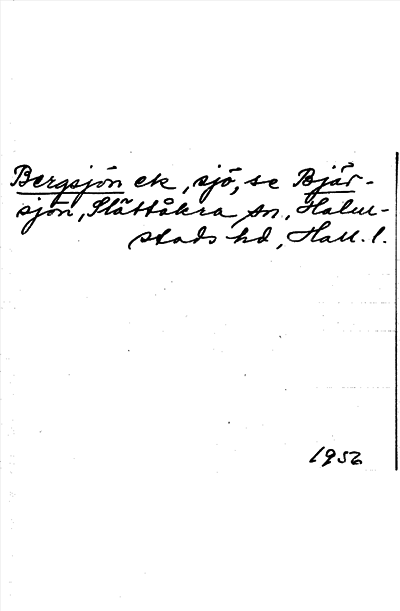 Bergsjön ek, sjö, se Bjär-
sjön, Slättåkra sn, Halm-
stads hd, Hall. l.
1952